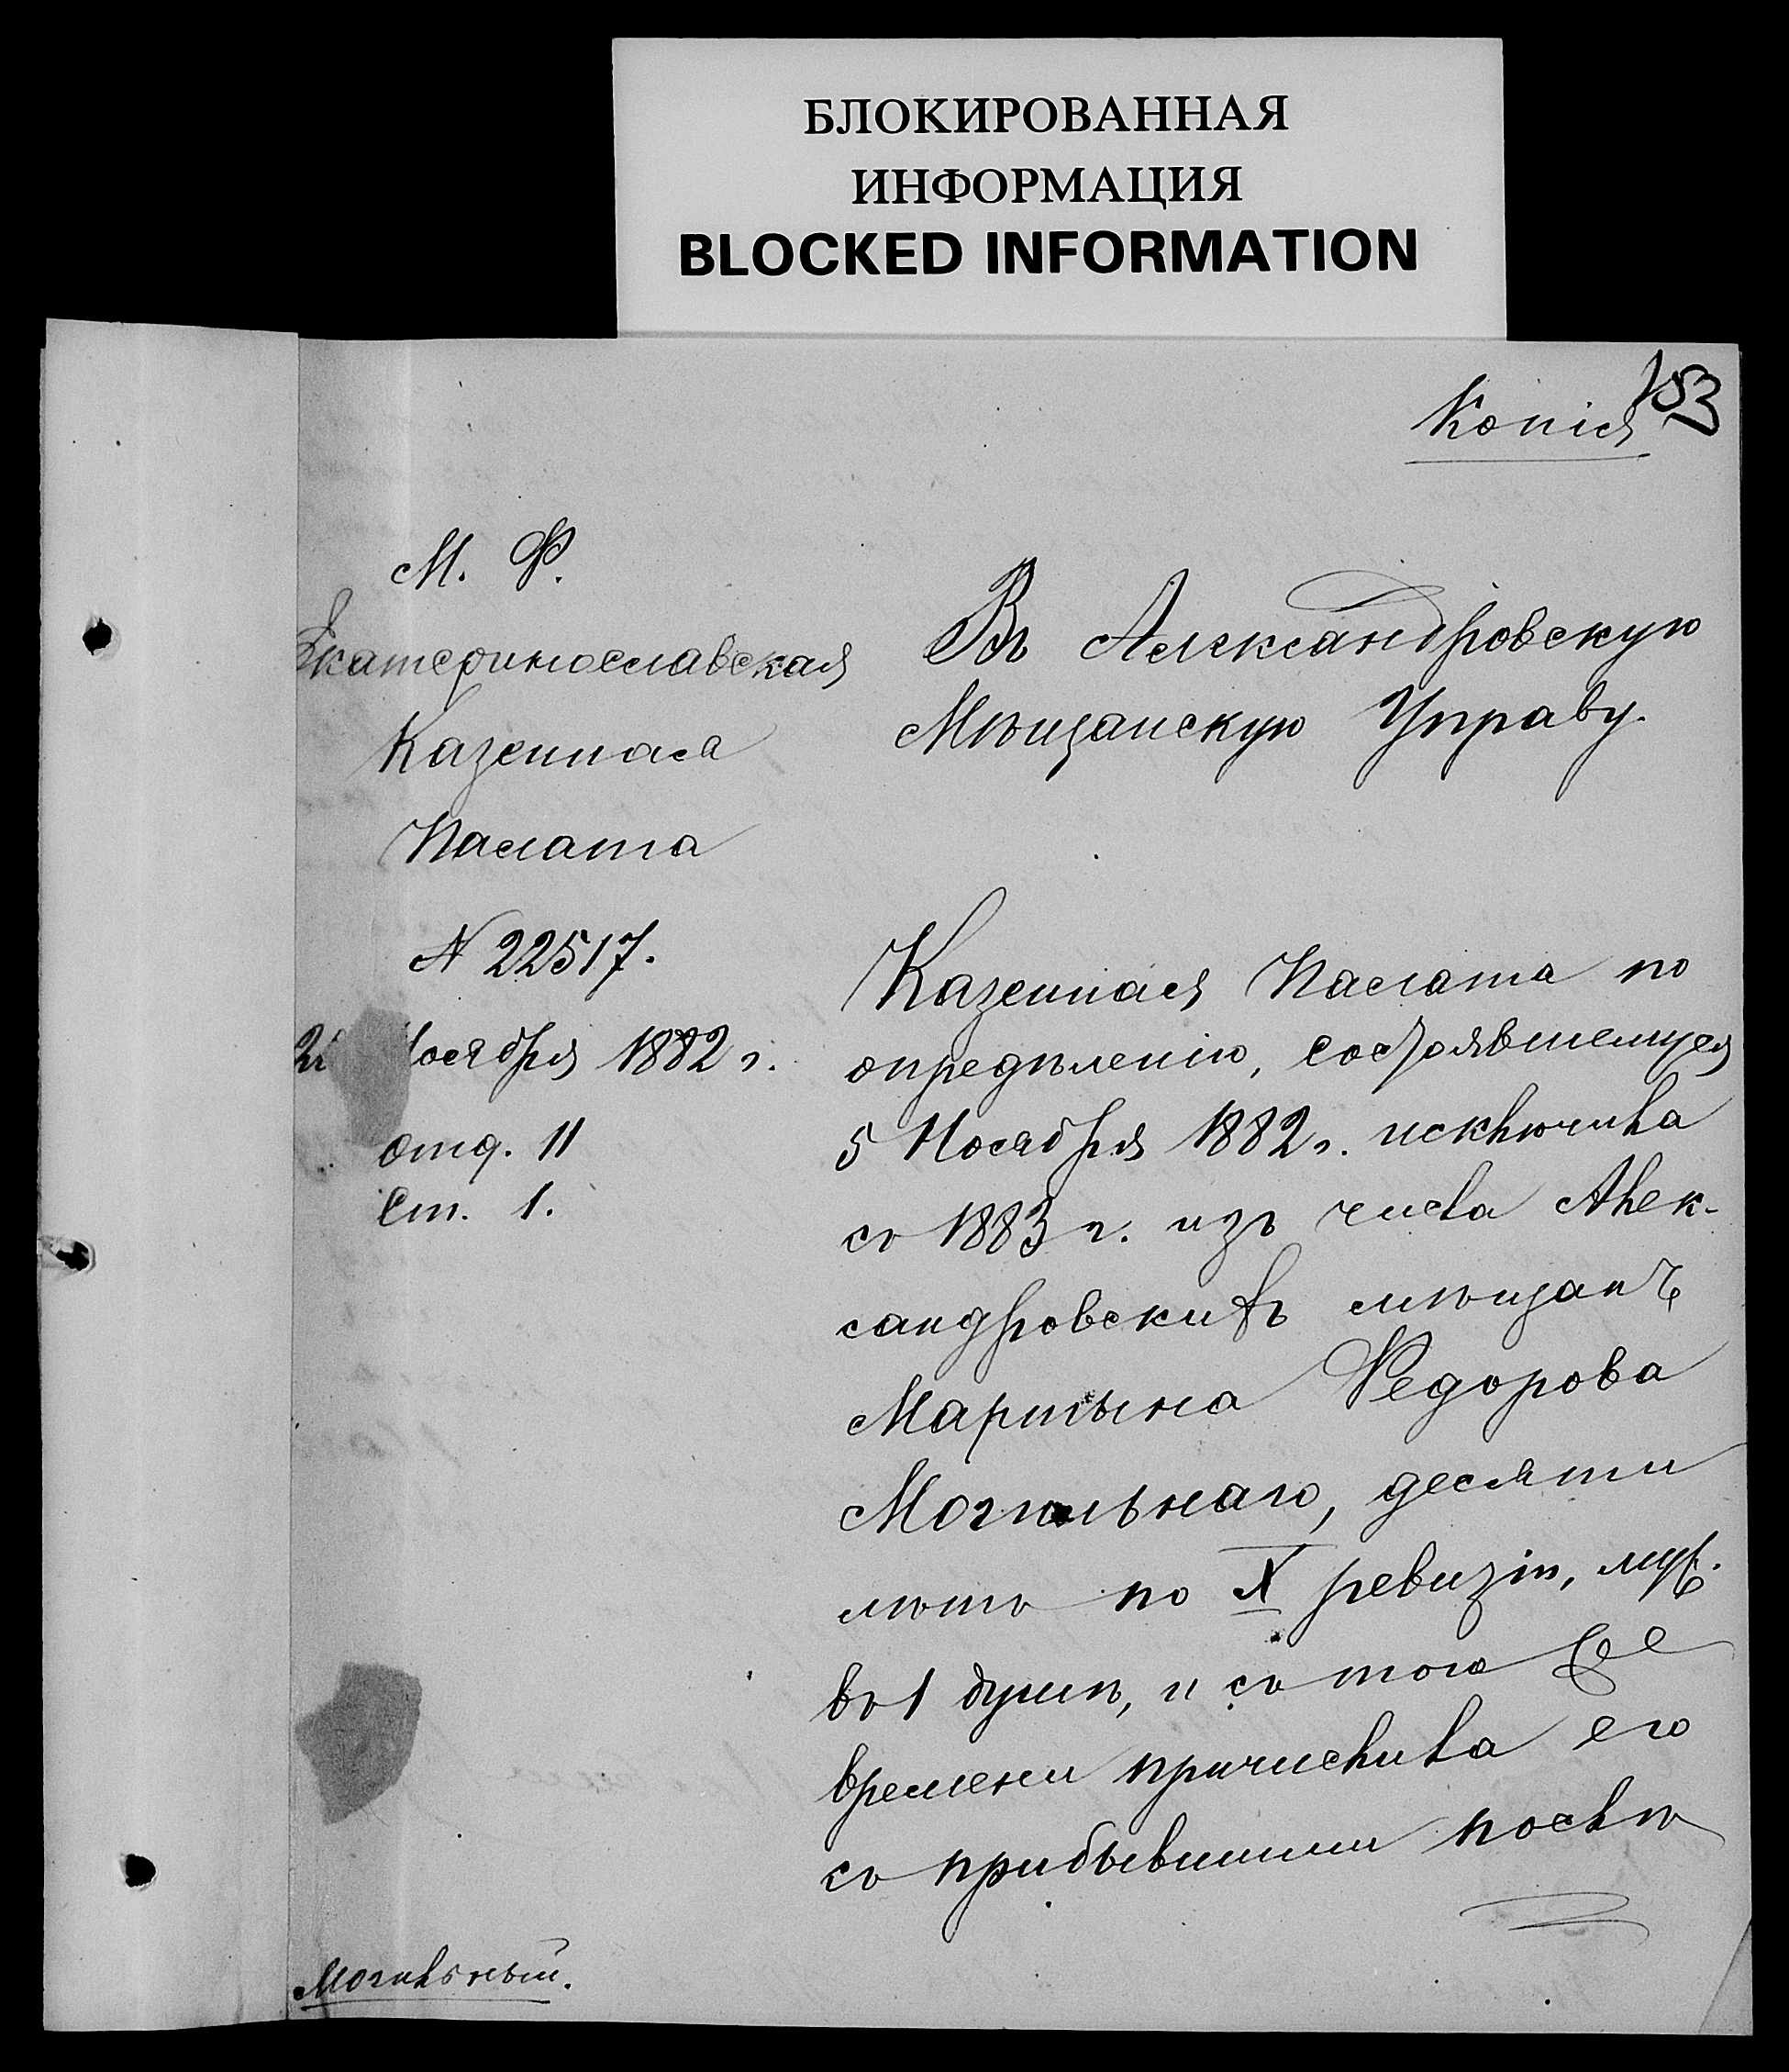 БЛОКИРОВАННАЯ
ИНФОРМАЦИЯ
BLOCKED INFORMATION
153
Копія
М. Ф.
Екатеринославская
Казенная
Палата
N 22517.
Ноября 1882 г.
отд. II
Ст. 1.
Въ Александровскую
Мѣщанскую Управу.
Казенная Палата по
опредѣленію, состоявшемуся
5 Ноября 1882 г. исключила
съ 1883 г. изъ числа Алек-
сандровскихъ мѣщанъ
Мартына Федорова
Могильнаго, десяти
лѣтъ по X ревизіи, муж.
въ 1 душѣ, и съ того же
времени причислила его
съ прибывшими послѣ
Могильный.